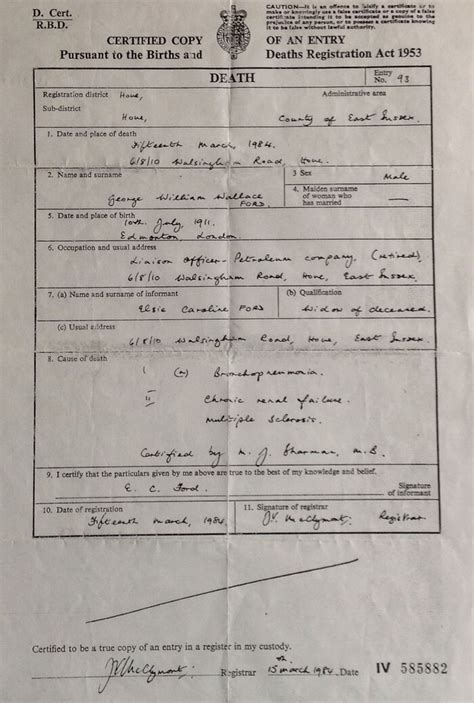 D. Cert.
R.B.D.
CAUTION—It is an offence to falsify a certificate or to
make or knowingly use a false certificate or a copy of a false
certificate intending it to be accepted as genuine to the
prejudice of any person, or to possess a certificate knowing
it to be false without lawful authority.
CERTIFIED COPY OF AN ENTRY
Pursuant to the Births and Deaths Registration Act 1953
DEATH
Entry No. 93
Registration district Hove,
Administrative area
Sub-district
Hove,
County of East Sussex.
1. Date and place of death
Fifteenth March, 1984.
6/8/10 Walsingham Road, Hove.
2. Name and surname
George William Wallace
FORD
3 Sex
Male
4. Maiden surname
of woman who
has married
5. Date and place of birth
10th July, 1911.
Edmonton, London.
6. Occupation and usual address
Liaison Officer - Petroleum company, (retired),
6/8/10 Walsingham Road, Hove, East Sussex.
7. (a) Name and surname of informant
Elsie Caroline FORD
(b) Qualification
Widow of deceased.
(c) Usual address
6/8/10 Walsingham Road, Hove, East Sussex.
8. Cause of death
I (a) Bronchopneumonia.
II Chronic renal failure.
Multiple Sclerosis.
Certified by J. Sharman, M.B.
9. I certify that the particulars given by me above are true to the best of my knowledge and belief.
E. C. Ford.
Signature
of informant
10. Date of registration
Fifteenth March, 1984.
11. Signature of registrar
J.V. McClymont. Registrar
Certified to be a true copy of an entry in a register in my custody.
JV McClymont Registrar 15th March 1984 Date IV 585882